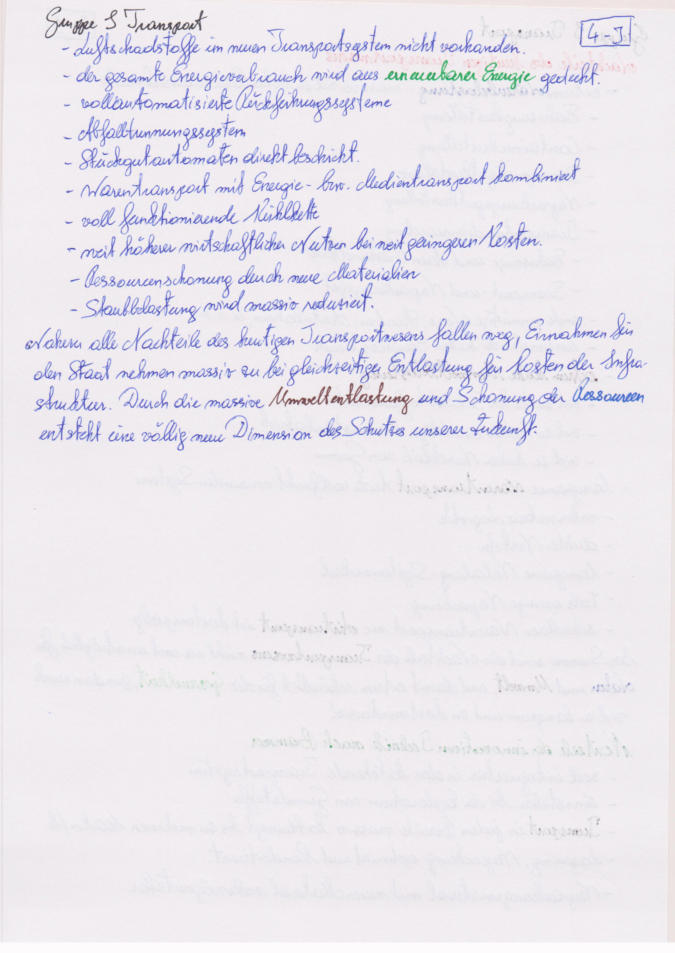 Gruppe S Transport
4-J
- Luftschadstoffe im neuen Transportsystem nicht vorhanden.
- der gesamte Energieverbrauch wird aus erneuerbarer Energie gedeckt.
- vollautomatisierte Rückführungssysteme
- Abfalltrennungssystem
- Stückgutautomaten direkt beschickt.
- Warentransport mit Energie- bzw. Medientransport kombiniert
- voll funktionierende Kühlkette
- weit höherer wirtschaftlicher Nutzen bei weit geringeren Kosten.
- Ressourcenschonung durch neue Materialien
- Staubbelastung wird massiv reduziert.
Nahezu alle Nachteile des heutigen Transportwesens fallen weg, Einnahmen für
den Staat nehmen massiv zu bei gleichzeitiger Entlastung für Kosten der Infra-
struktur. Durch die massive Umweltentlastung und Schonung der Ressourcen
entsteht eine völlig neue Dimension des Schutzes unserer Zukunft.